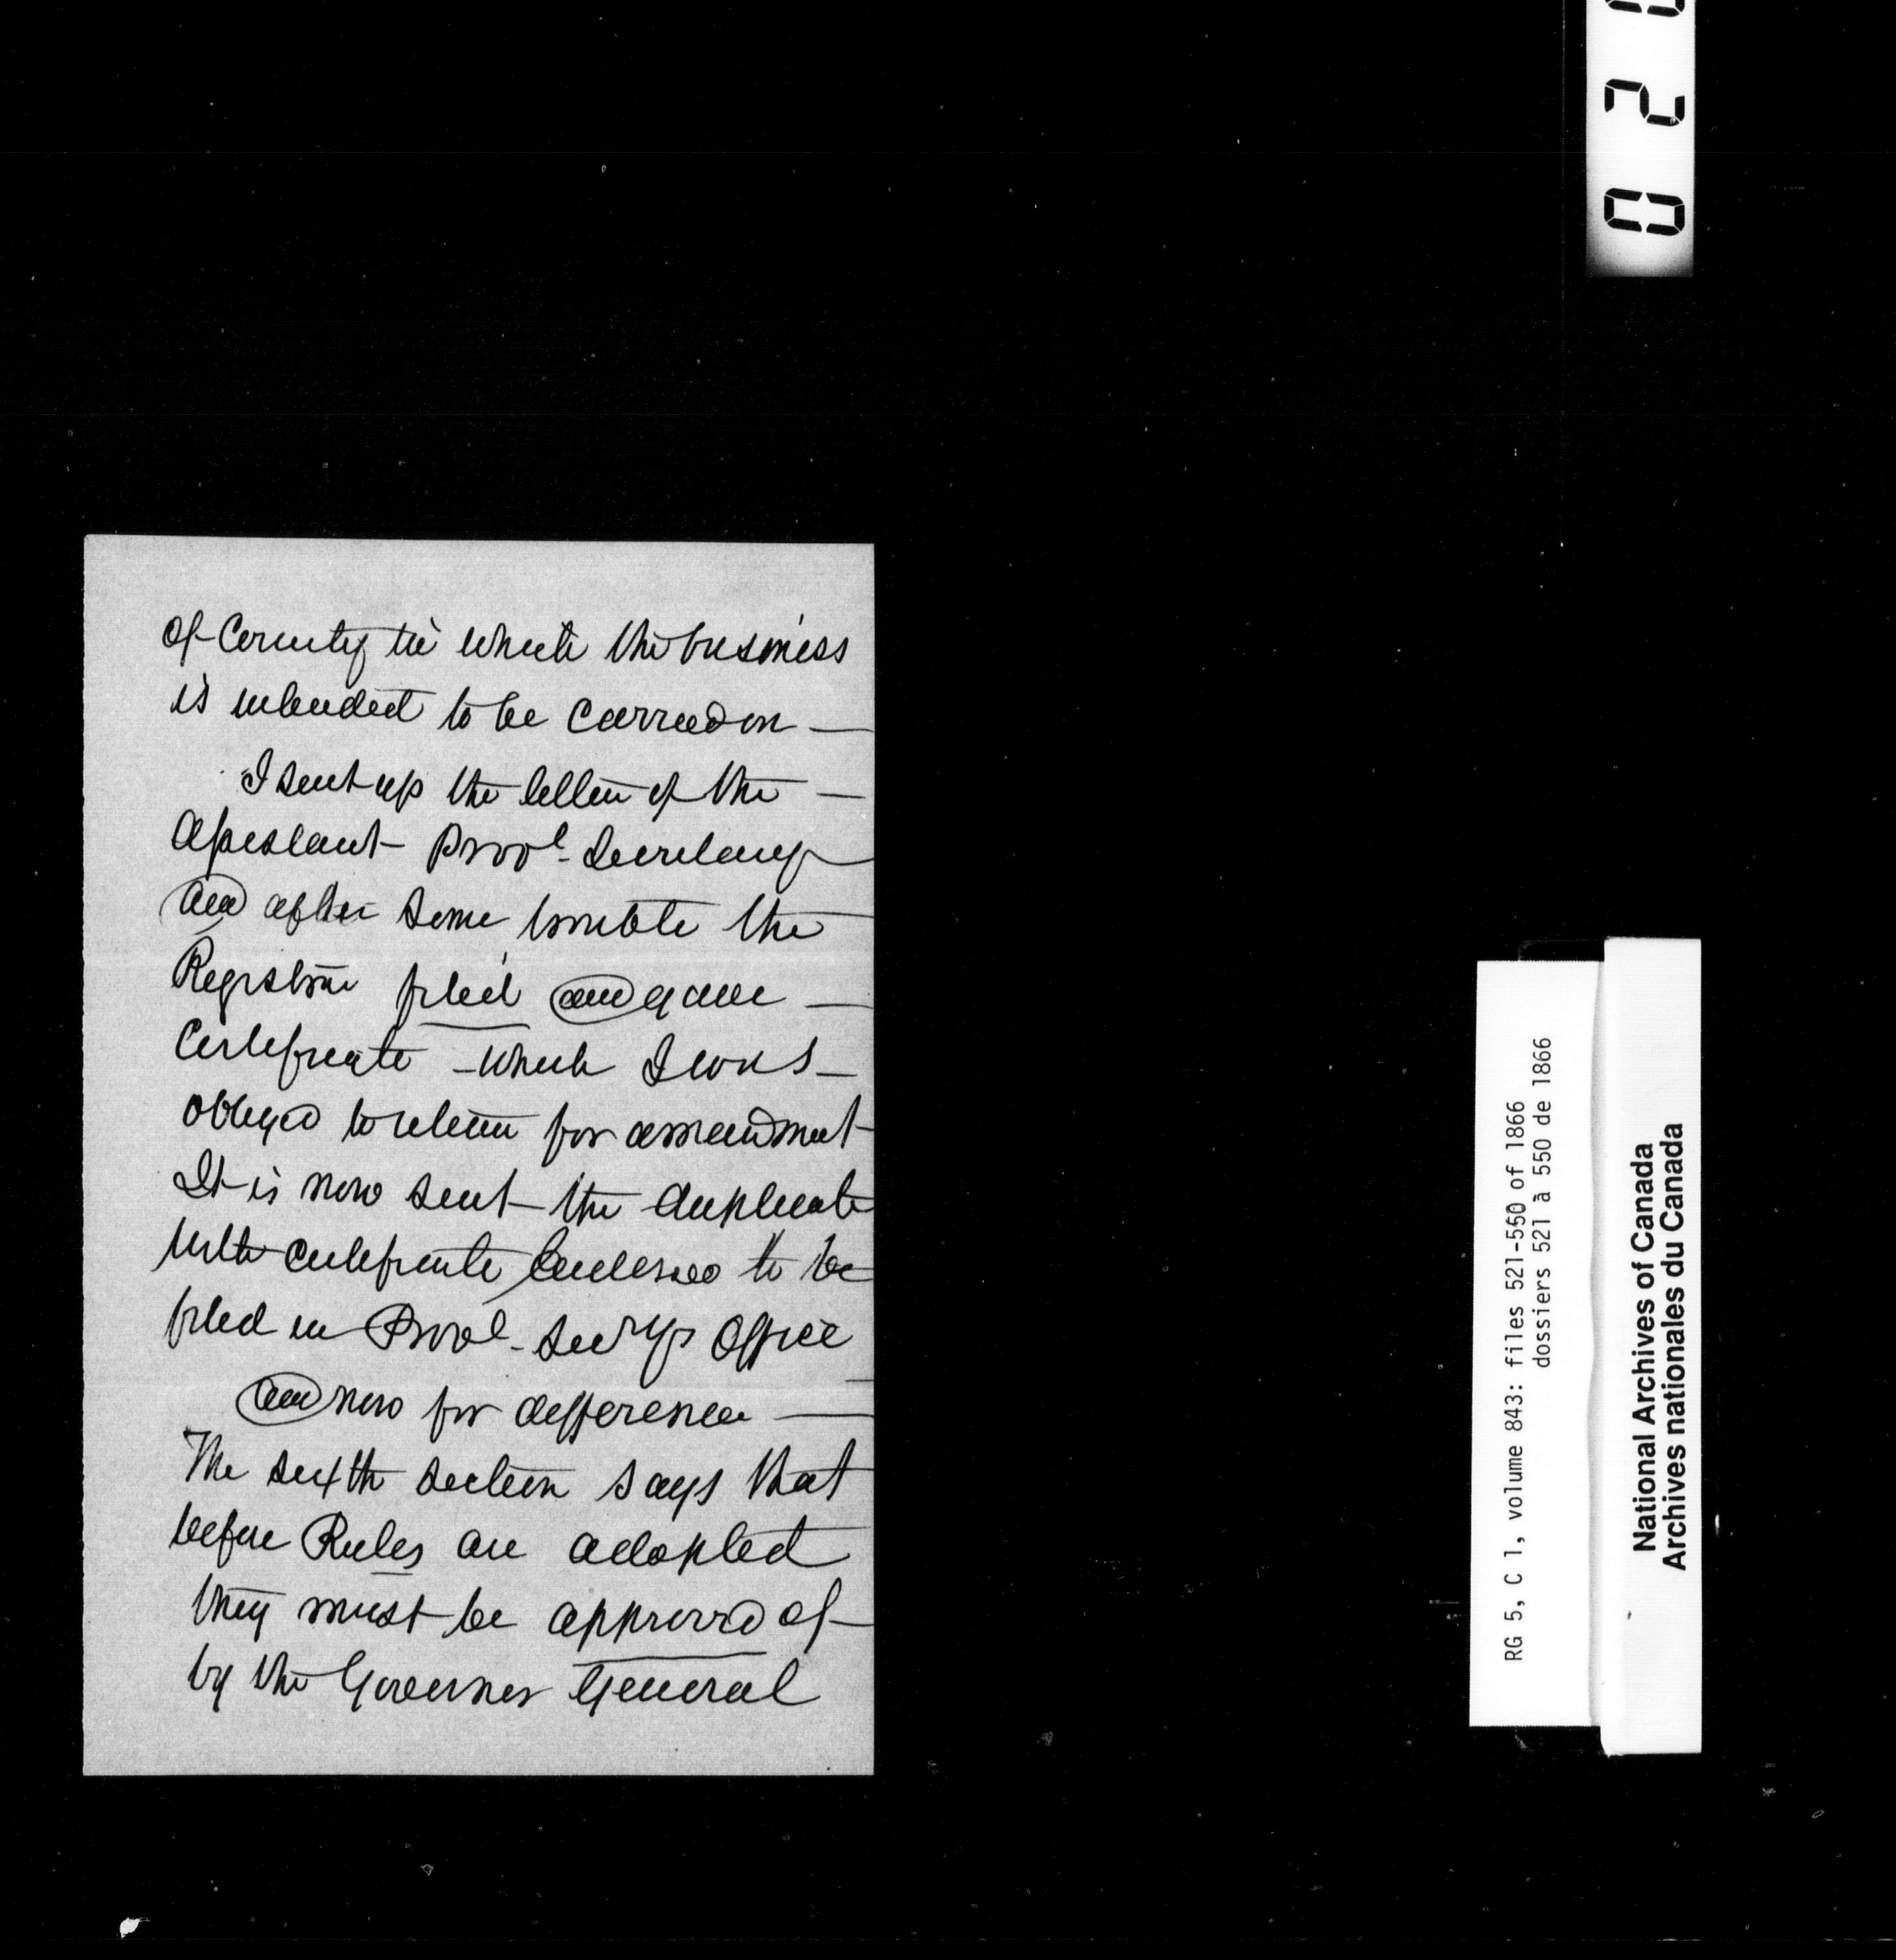 of County in which the business
is intended to be carried on —
I sent up the letter of the —
Assistant Provl. Secretary
and after some trouble the
Registrar filed and gave —
Certificate – which I was –
obliged to return for amendment
It is now sent – the duplicate
with certificate enclosed to be
filed in Provl. Secrys Office
and now for difference —
The sixth section says that
before Rules are adopted
they must be approved of
by the Governor General
0 2
RG 5, C 1, volume 843: files 521-550 of 1866
dossiers 521 à 550 de 1866
National Archives of Canada
Archives nationales du Canada